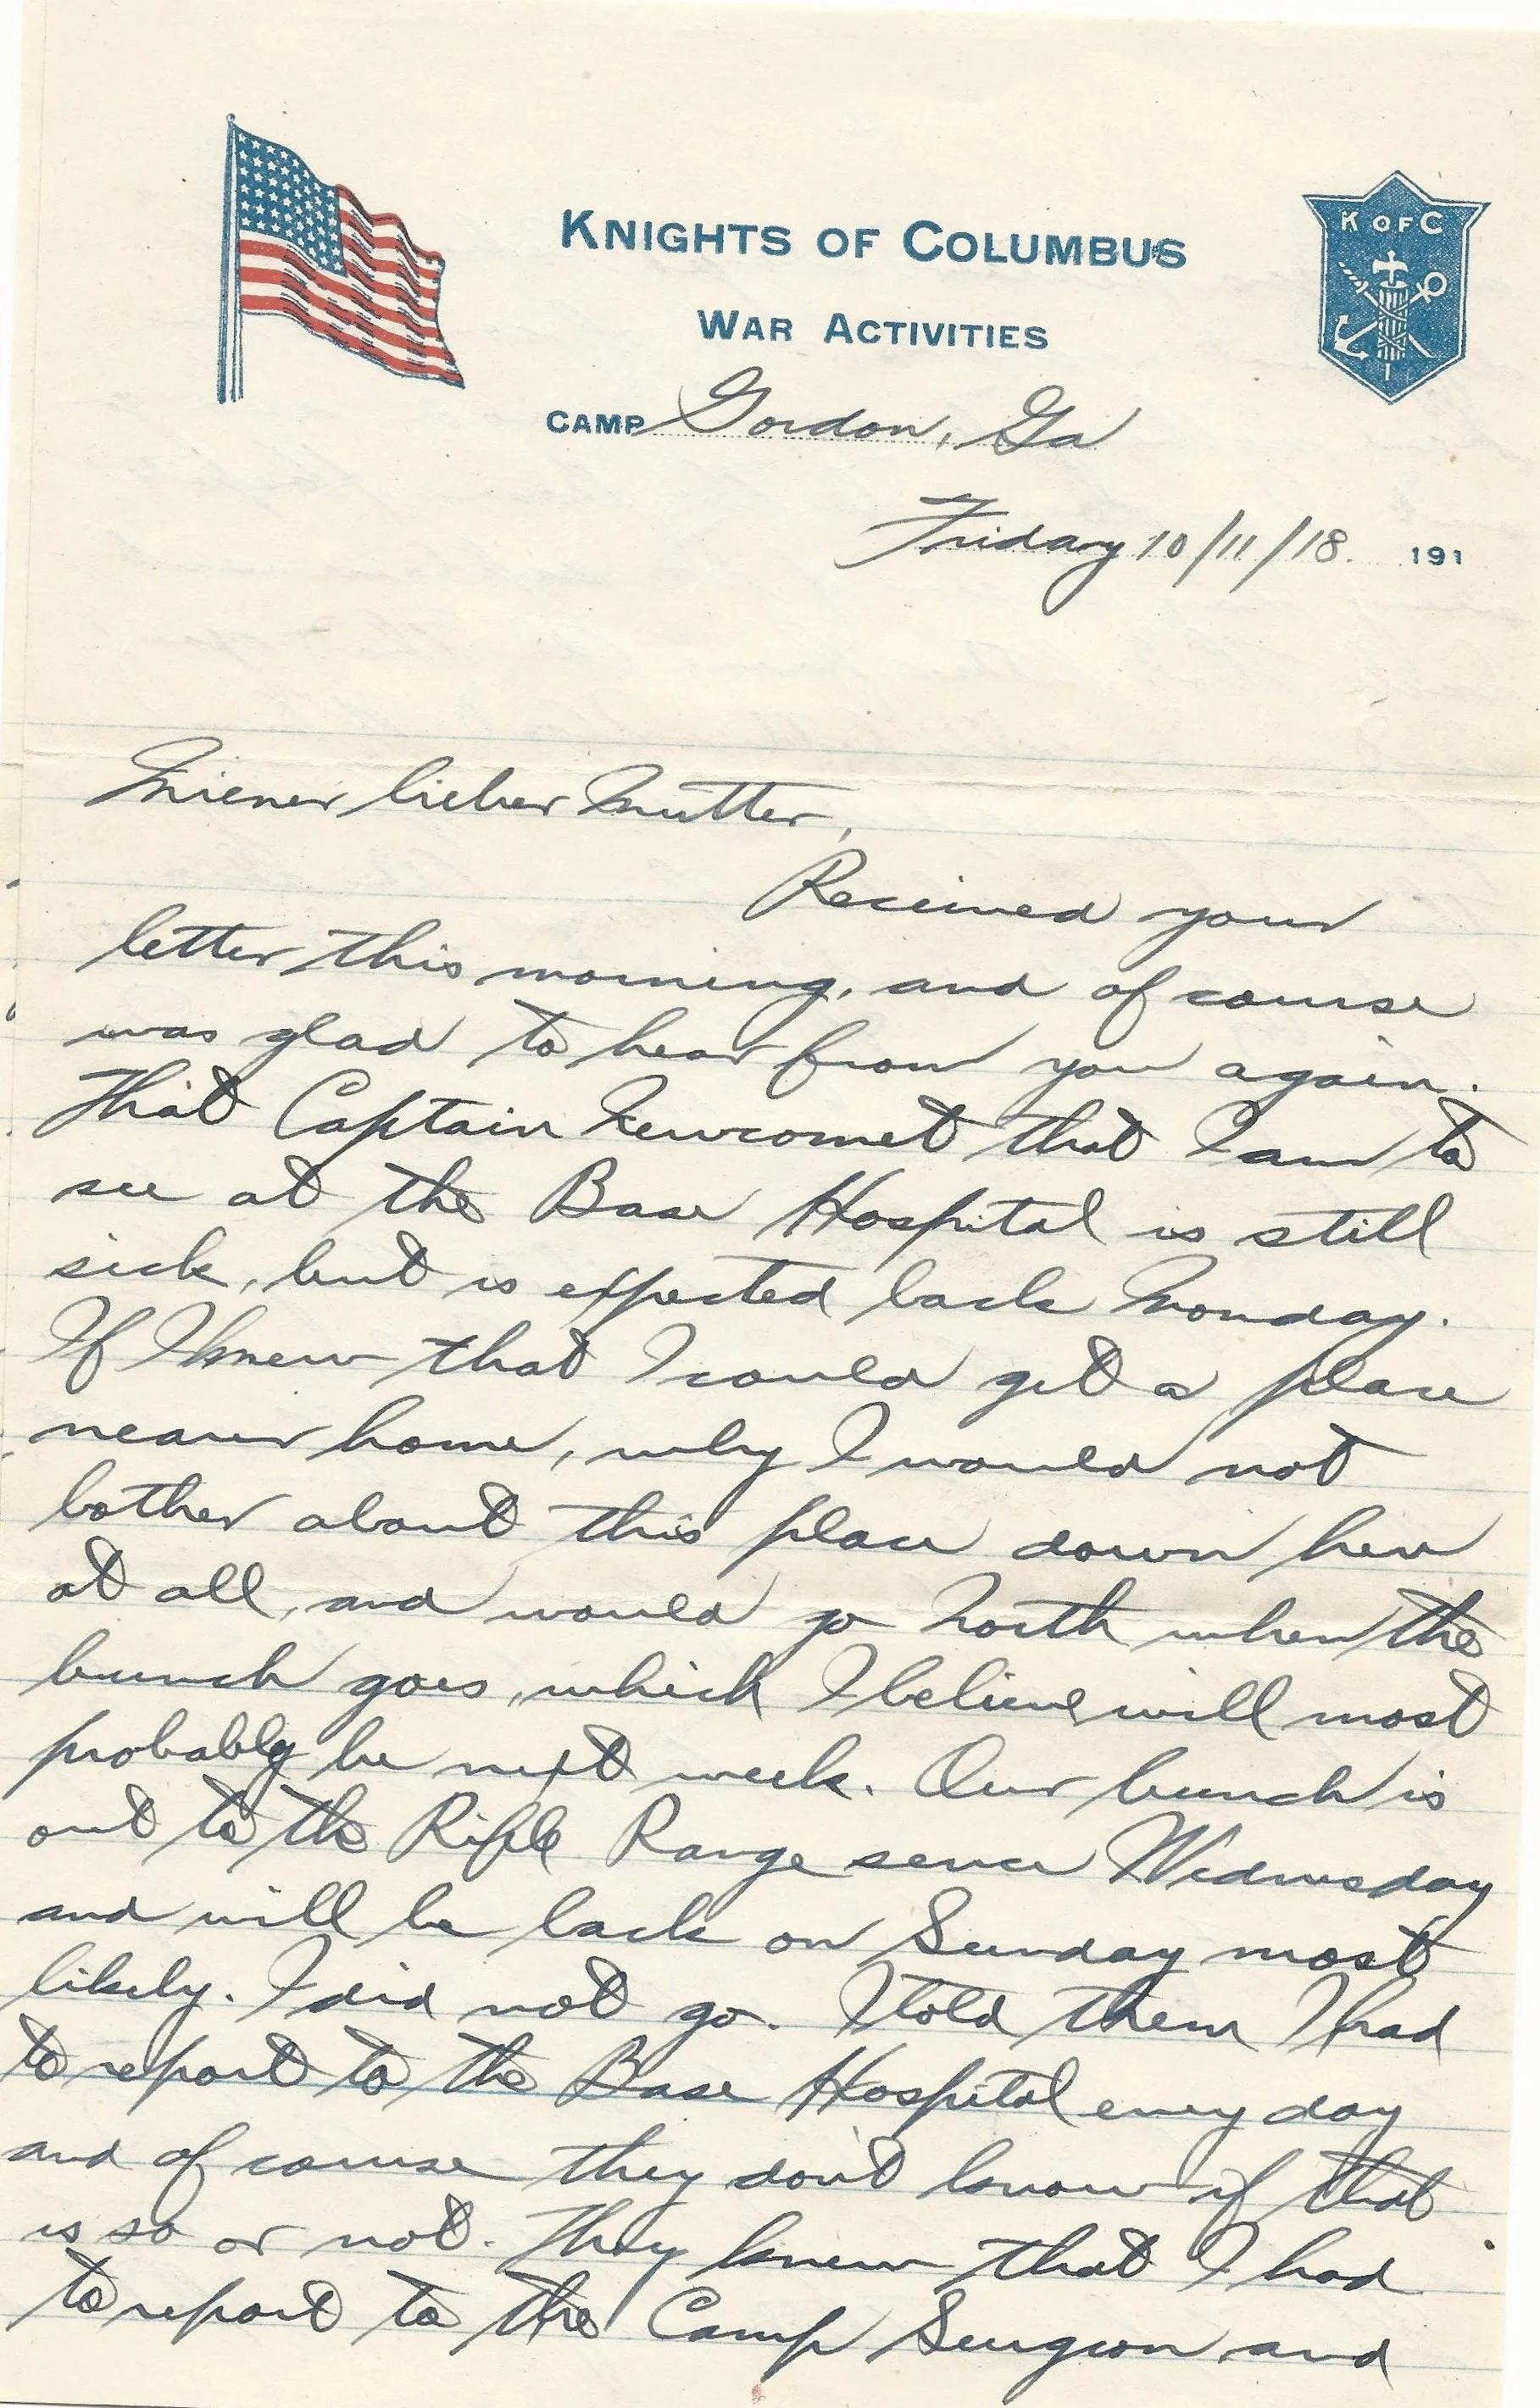 KNIGHTS OF COLUMBUS
K OF C
WAR ACTIVITIES
CAMP Gordon, Ga
Friday 10/11/18. 191
Miener lieber Mutter,
Received your
letter this morning, and of course
was glad to hear from you again.
That Captain Newcomet that I am to
see at the Base Hospital is still
sick, but is expected back Monday.
If I knew that I could get a place
nearer home, why I would not
bother about this place down here
at all, and would go North when the
bunch goes, which I believe will most
probably be next week. Our bunch is
out to the Rifle Range sence Wednesday
and will be back on Sunday most
likely. I did not go. I told them I had
to report to the Base Hospital every day
and of course they don't know if that
is so or not. They knew that I had
to report to the Camp Surgeon and